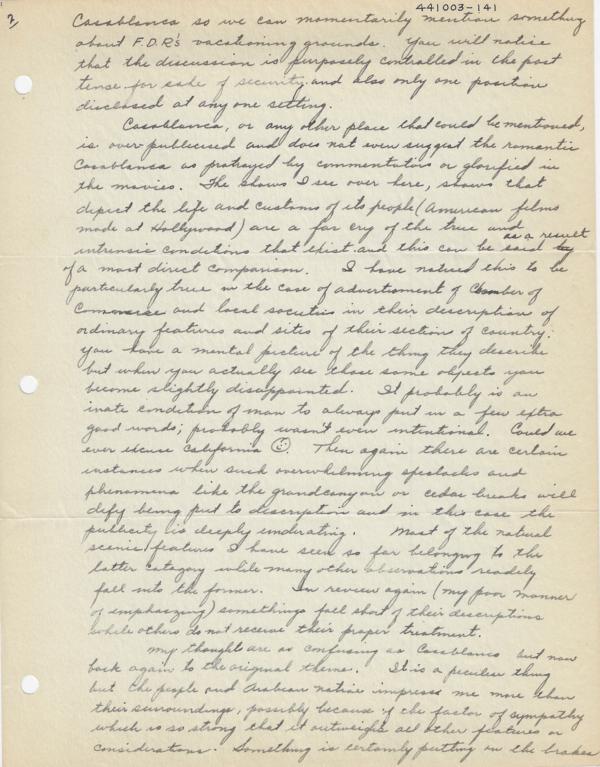 441003-141
2/
Casablanca so we can momentarily mention something
about F.D.R's vacationing grounds. You will notice
that the discussion is purposely controlled in the past
tense for sake of security and also only one position
disclosed at any one setting.
Casablanca, or any other place that could be mentioned,
is over publicised and does not even suggest the romantic
Casablanca as protrayed by commentators or glorified in
the movies. The shows I see over here, shows that
depict the life and customs of its people (American films
made at Hollywood) are a far cry of the true and
intrinsic conditions that exist and this can be said as a result
of a most direct comparison. I have noticed this to be
particularly true in the case of advertisment of Chamber of
Commerce and local societies in their description of
ordinary features and sites of their section of country;
you have a mental picture of the thing they describe
but when you actually see those same objects you
become slightly disappointed. It probably is an
inate condition of man to always put in a few extra
good words; probably wasn't even intentional. Could we
ever excuse California ☺. Then again there are certain
instances when such overwhelming spectacles and
phenomena like the grand canyon or cedar breaks will
defy being put to description and in this case the
publicity is deeply underating. Most of the natural
scenic features I have seen so far belonging to the
latter catagory while many other observations readily
fall into the former. In review again (my poor manner
of emphasizing) somethings fall short of their descriptions
while others do not receive their proper treatment.
My thought are as confusing as Casablanca but now
back again to the original theme. It is a peculiar thing
but the people and Arabian native impresses me more than
their surroundings, possibly because of the factor of sympathy
which is so strong that it outweighs all other features or
considerations. Something is certainly putting on the brakes